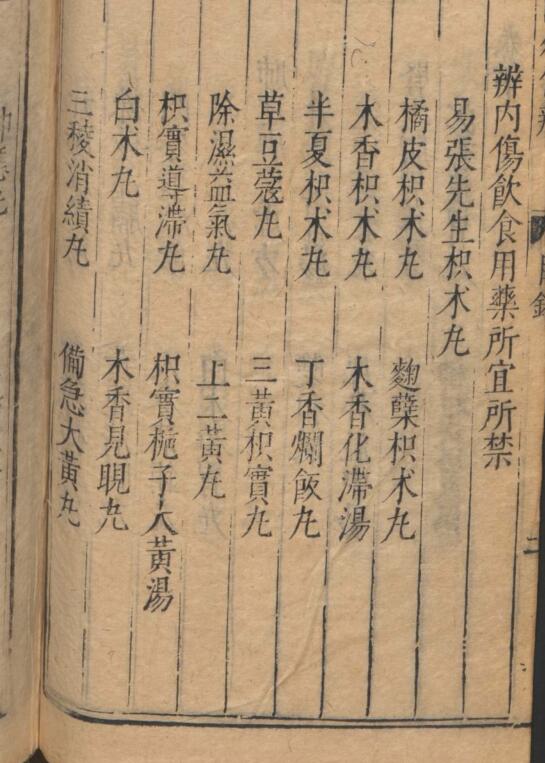 辨內傷飲食用藥所宜所禁
易張先生枳朮丸
橘皮枳朮丸 麴蘖枳朮丸
木香枳朮丸 木香化滯湯
半夏枳朮丸 丁香爛飯丸
草豆蔻丸 三黃枳實丸
除濕益氣丸 上二黃丸
枳實導滯丸 枳實梔子大黃湯
白朮丸 木香見睍丸
三稜消績丸 備急大黃丸
二